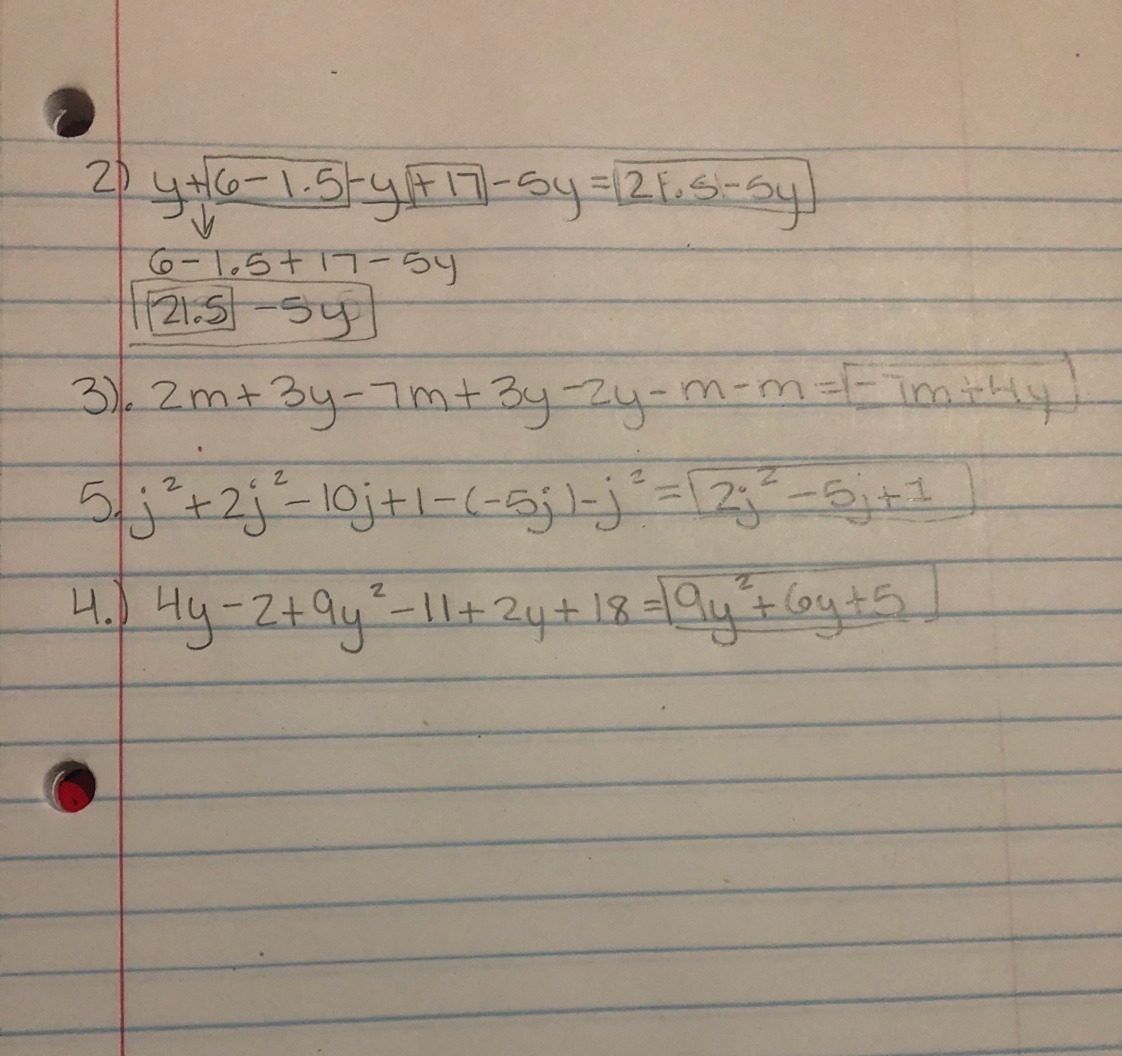 2) y+6-1.5-y+17-5y=21.5-5y
↓
6-1.5+17-5y
21.5-5y
3). 2m+3y-7m+3y-2y-m-m=-7m+4y
5. j²+2j²-10j+1-(-5j)-j²=2j²-5j+1
4.) 4y-2+9y²-11+2y+18=9y²+6y+5